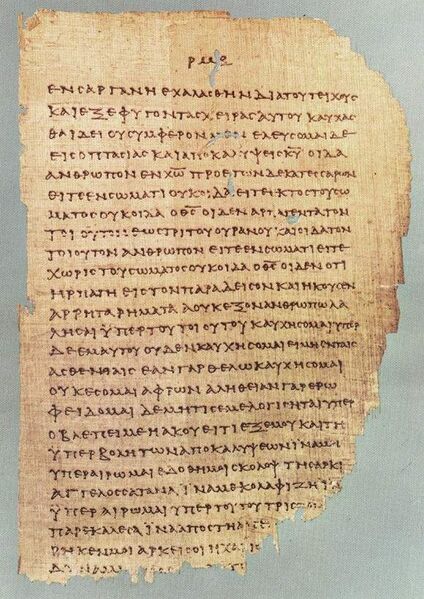 ΕΝΣΑΡΓΑΝΗΕΧΑΛΑΣΘΗΝΔΙΑΤΟΥΤΕΙΧΟΥΣ
ΚΑΙΕΞΕΦΥΓΟΝΤΑΣΧΕΙΡΑΣΑΥΤΟΥΚΑΥΧΑΣ
ΘΑΙΔΕΙΟΥΣΥΜΦΕΡΟΝΜΕΝΕΛΕΥΣΟΜΑΙΔΕ
ΕΙΣΟΠΤΑΣΙΑΣΚΑΙΑΠΟΚΑΛΥΨΕΙΣΚ̅Υ̅ΟΙΔΑ
ΑΝΘΡΩΠΟΝΕΝΧ̅Ω̅ΠΡΟΕΤΩΝΔΕΚΑΤΕΣΣΑΡΩΝ
ΕΙΤΕΕΝΣΩΜΑΤΙΟΥΚΟΙΔΑΕΙΤΕΕΚΤΟΣΤΟΥΣΩ
ΜΑΤΟΣΟΥΚΟΙΔΑΟΘ̅Σ̅ΟΙΔΕΝΑΡΠΑΓΕΝΤΑΤΟΝ
ΤΟΙΟΥΤΟΝΕΩΣΤΡΙΤΟΥΟΥΡΑΝΟΥΚΑΙΟΙΔΑΤΟΝ
ΤΟΙΟΥΤΟΝΑΝΘΡΩΠΟΝΕΙΤΕΕΝΣΩΜΑΤΙΕΙΤΕ
ΧΩΡΙΣΤΟΥΣΩΜΑΤΟΣΟΥΚΟΙΔΑΟΘ̅Σ̅ΟΙΔΕΝΟΤΙ
ΗΡΠΑΓΗΕΙΣΤΟΝΠΑΡΑΔΕΙΣΟΝΚΑΙΗΚΟΥΣΕΝ
ΑΡΡΗΤΑΡΗΜΑΤΑΑΟΥΚΕΞΟΝΑΝΘΡΩΠΩΛΑ
ΛΗΣΑΙΥΠΕΡΤΟΥΤΟΙΟΥΤΟΥΚΑΥΧΗΣΟΜΑΙΥΠΕΡ
ΔΕΕΜΑΥΤΟΥΟΥΔΕΝΚΑΥΧΗΣΟΜΑΙΕΙΜΗΕΝΤΑΙΣ
ΑΣΘΕΝΕΙΑΙΣΕΑΝΓΑΡΘΕΛΩΚΑΥΧΗΣΟΜΑΙ
ΟΥΚΕΣΟΜΑΙΑΦΡΩΝΑΛΗΘΕΙΑΝΓΑΡΕΡΩ
ΦΕΙΔΟΜΑΙΔΕΜΗΤΙΣΕΜΕΛΟΓΙΣΗΤΑΙΥΠΕΡ
ΟΒΛΕΠΕΙΜΕΗΑΚΟΥΕΙΤΙΕΞΕΜΟΥΚΑΙΤΗ
ΥΠΕΡΒΟΛΗΤΩΝΑΠΟΚΑΛΥΨΕΩΝΪΝΑΜΗ
ΥΠΕΡΑΙΡΩΜΑΙΕΔΟΘΗΜΟΙΣΚΟΛΟΨΤΗΣΑΡΚΙ
ΑΓΓΕΛΟΣΣΑΤΑΝΑΪΝΑΜΕΚΟΛΑΦΙΖΗΪΝ
ΥΠΕΡΑΙΡΩΜΑΙΥΠΕΡΤΟΥΤΟΥΤΡΙΣ
ΠΑΡΕΚΑΛΕΣΑΪΝΑΑΠΟΣΤΗ
ΡΗΚΕΝΜΟΙΑΡΚΕΙΣΟΙΗΧΑΡΙΣ
ΔΥΝΑΜΙΣ